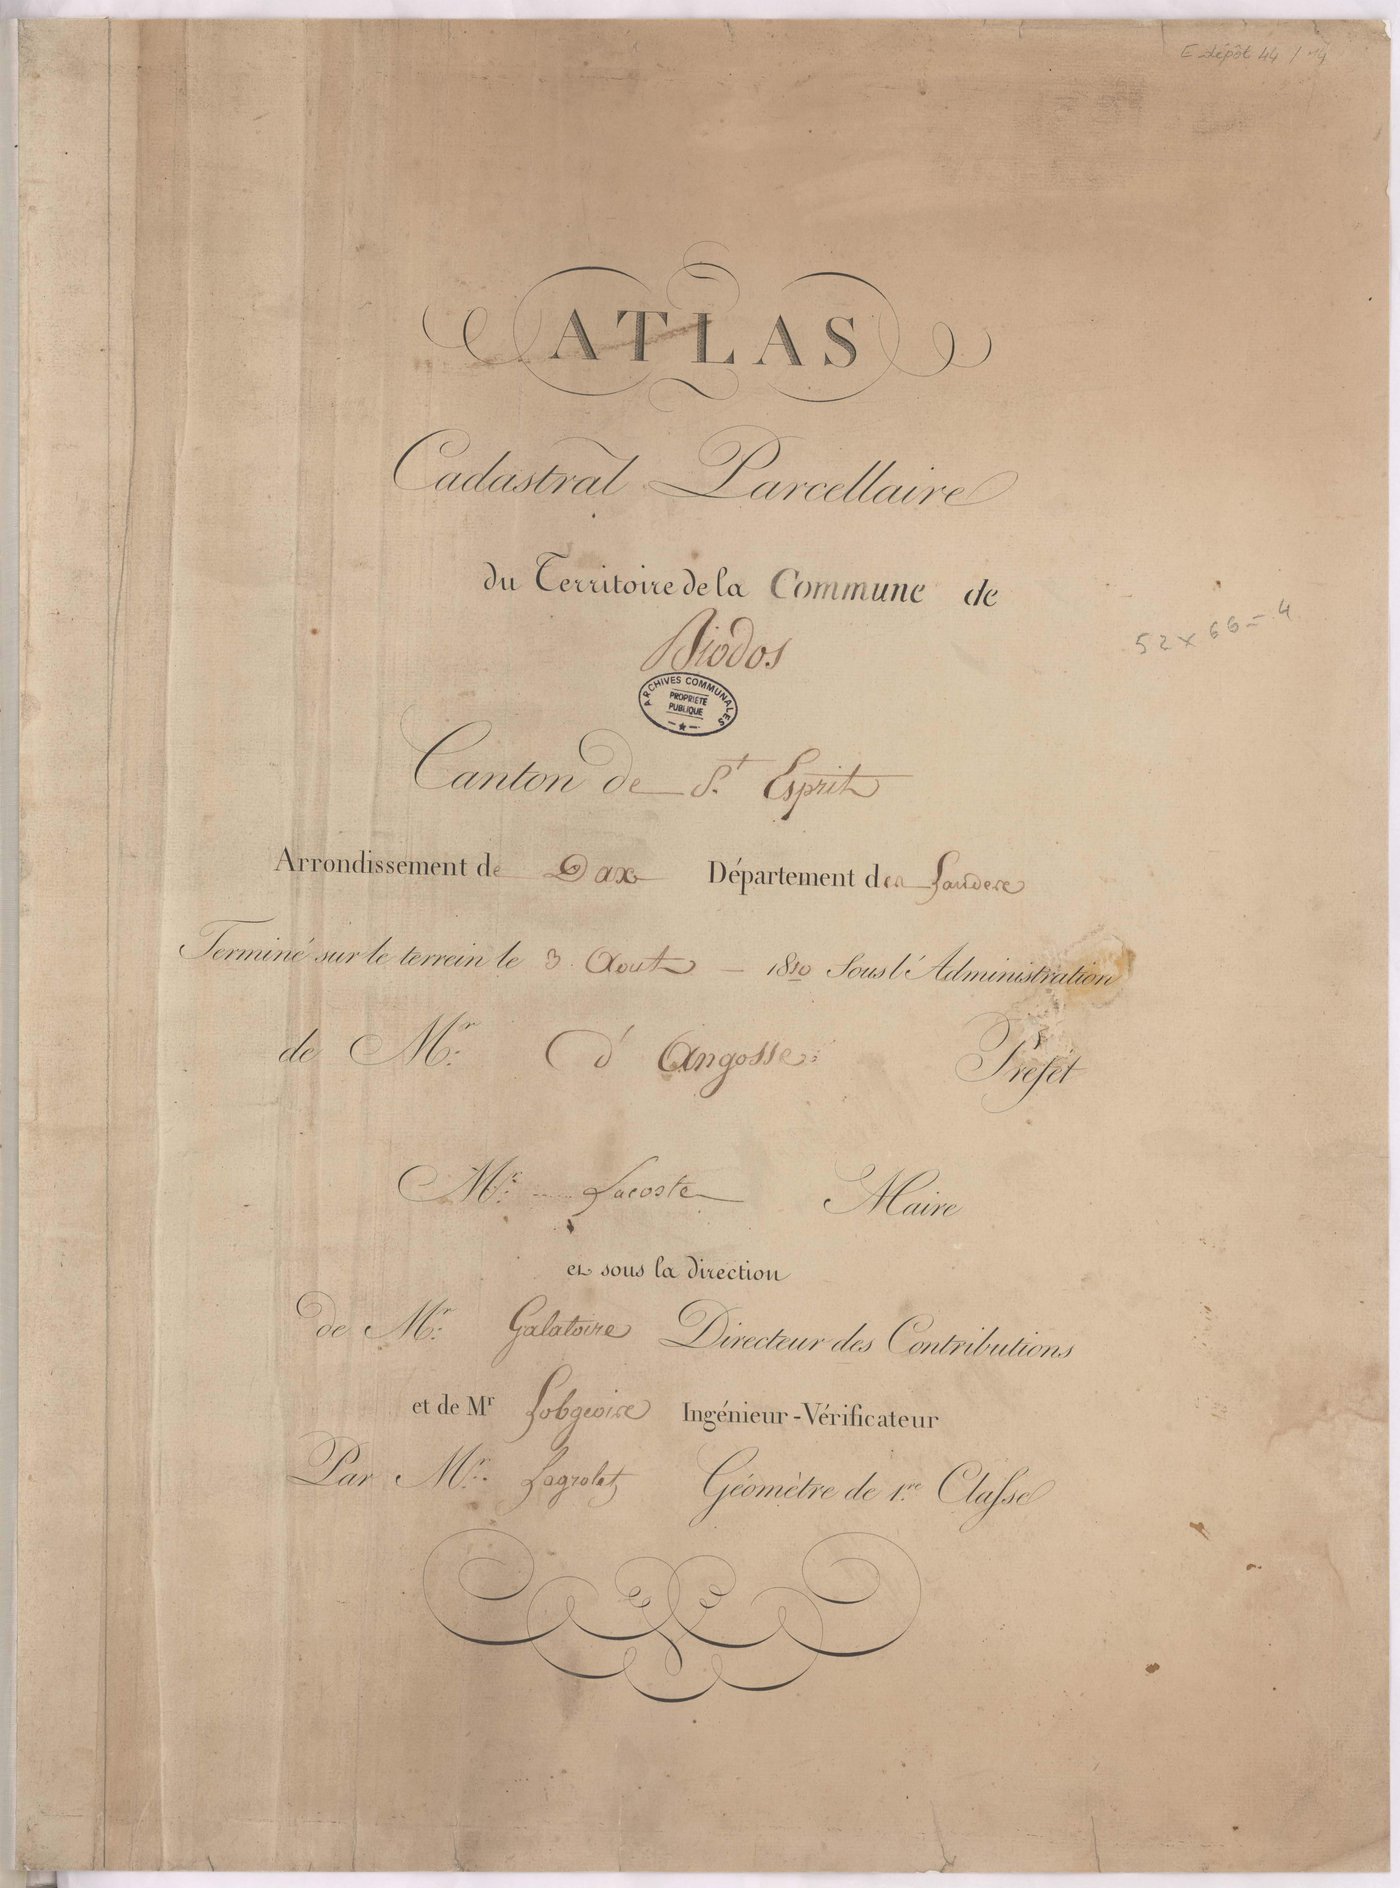 E dépôt 44 / 14
ATLAS
Cadastral Parcellaire
du Territoire de la Commune de
Biodos
52 x 66 = 4
ARCHIVES COMMUNALES
PROPRIETE
PUBLIQUE
Canton de St. Esprit
Arrondissement de Dax Département des Landes
Terminé sur le terrein le 3 Aout 1810 Sous l'Administration
de Mr. d'Angosse Préfet
Mr. Lacoste Maire
et sous la direction
de Mr. Galatoire Directeur des Contributions
et de Mr Lobgeoise Ingénieur-Vérificateur
Par Mr. Lagrolet Géomètre de 1.re Classe